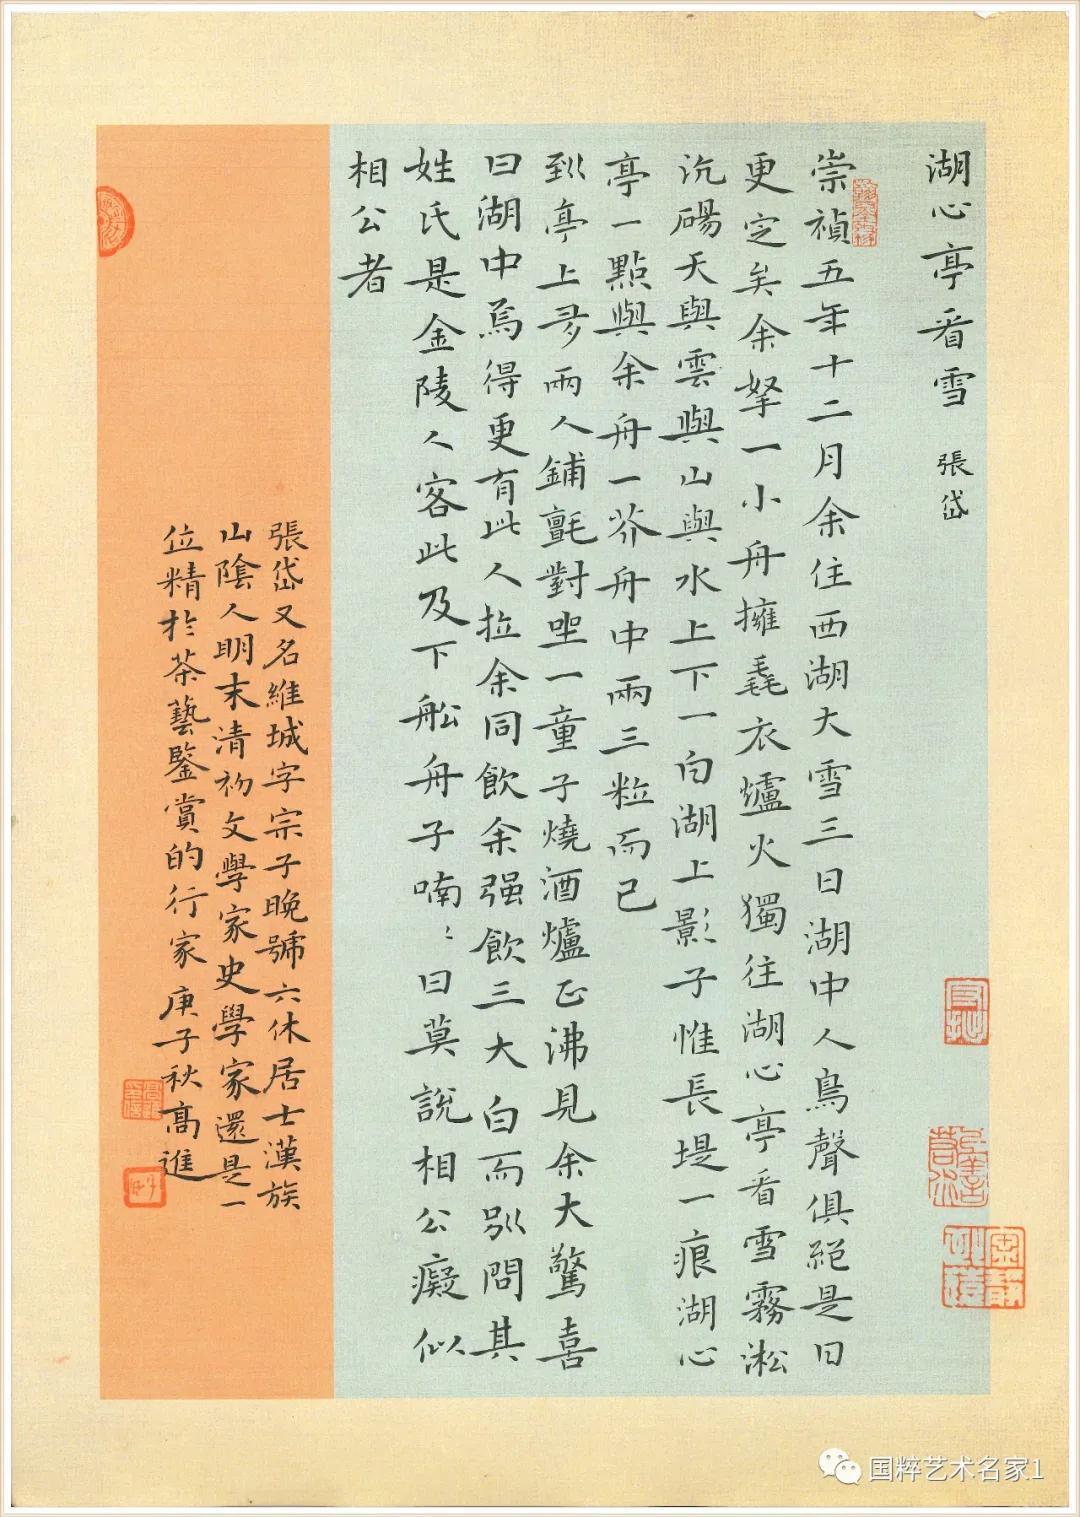 湖心亭看雪 張岱
崇禎五年十二月余住西湖大雪三日湖中人鳥聲俱絕是日
更定矣余拏一小舟擁毳衣爐火獨往湖心亭看雪霧淞
沆碭天與雲與山與水上下一白湖上影子惟長堤一痕湖心
亭一點與余舟一芥舟中兩三粒而已
到亭上有兩人鋪氈對坐一童子燒酒爐正沸見余大驚喜
曰湖中焉得更有此人拉余同飲余强飲三大白而別問其
姓氏是金陵人客此及下船舟子喃〻曰莫說相公癡似
相公者
張岱又名維城字宗子晚號六休居士漢族
山陰人明末清初文學家史學家還是一
位精於茶藝鑒賞的行家庚子秋高進
国粹艺术名家1